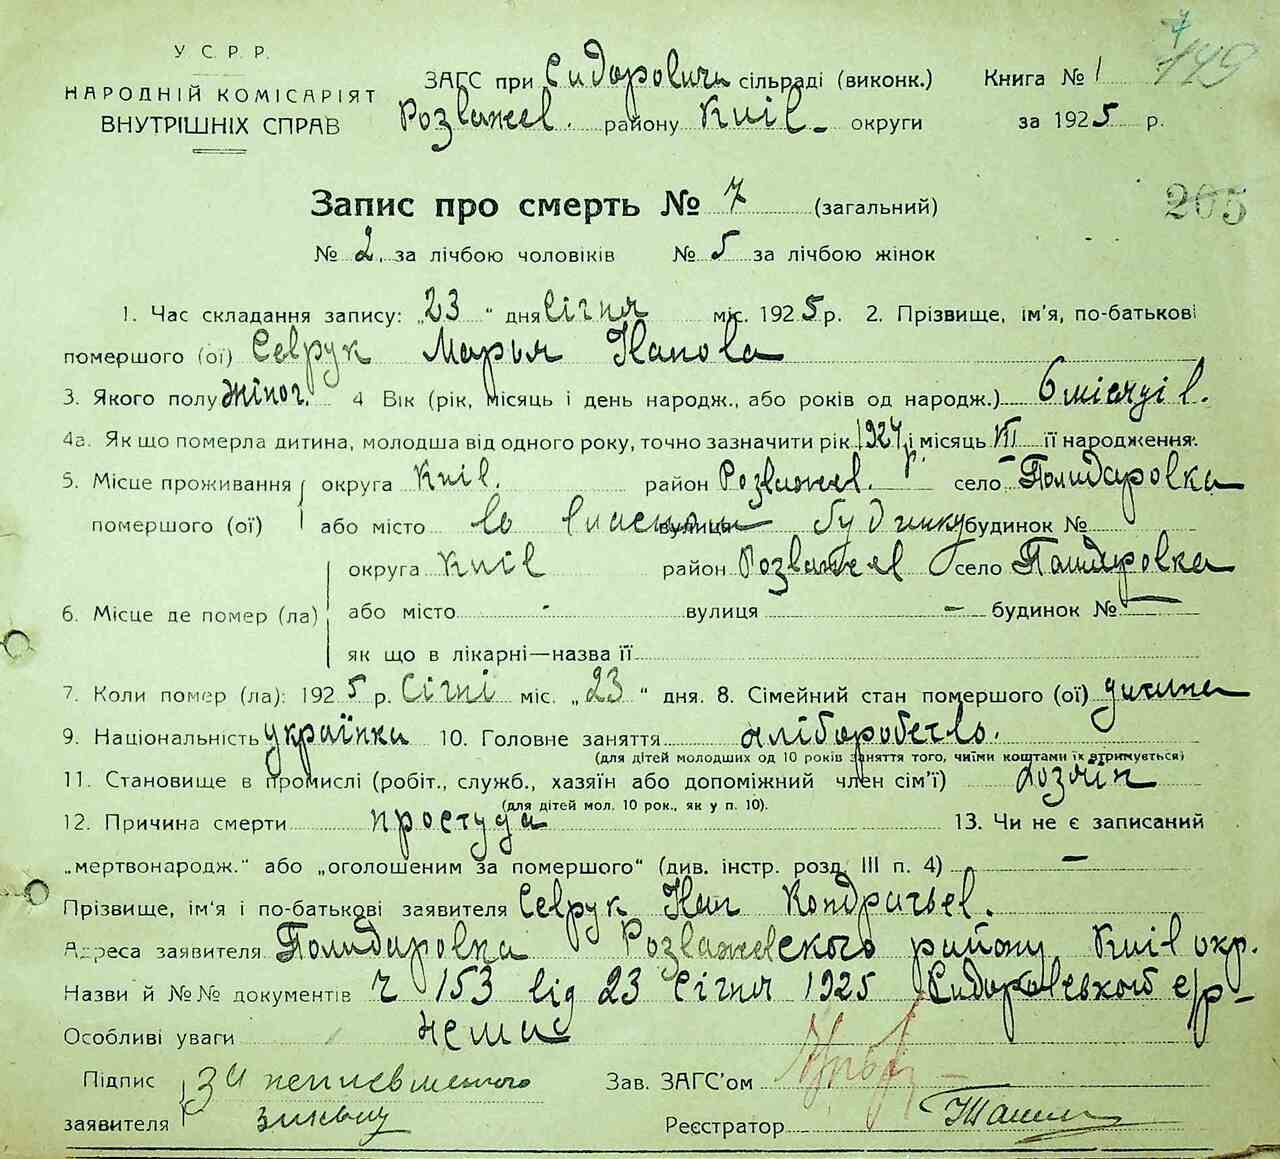 У.С.Р.Р.
НАРОДНІЙ КОМІСАРІЯТ
ВНУТРІШНІХ СПРАВ
ЗАГС при Сидорович сільраді (виконк.) Книга № 1
Розважев. району Київ округи за 1925 р.
149
Запис про смерть № 7 (загальний)
205
№ 2 за лічбою чоловіків № 5 за лічбою жінок
1. Час складання запису: „23“ дня Січня міс. 1925 р. 2. Прізвище, ім'я, по-батькові
помершого (ої) Севрук Марья Іванова
3. Якого полу жіноч. 4 Вік (рік, місяць і день народж., або років од народж.) 6 місяців.
4а. Як що померла дитина, молодша від одного року, точно зазначити рік 1924 і місяць VII її народження.
5. Місце проживання округа Київ. район Розважев. село Полидаровка
помершого (ої) або місто во власному вулиця будинку будинок №
округа Київ район Розважев село Полидаровка
6. Місце де помер (ла) або місто - вулиця - будинок № -
як що в лікарні—назва її
7. Коли помер (ла): 1925 р. Січні міс. „23“ дня. 8. Сімейний стан помершого (ої) дитина
9. Національність українка 10. Головне заняття хліборобство.
(для дітей молодших од 10 років заняття того, чиїми коштами їх втримується)
11. Становище в промислі (робіт., служб., хазяїн або допоміжний член сім'ї) хозяїн
(для дітей мол. 10 рок., як у п. 10).
12. Причина смерти простуда 13. Чи не є записаний
„мертвонародж.“ або „оголошеним за помершого“ (див. інстр. розд. III п. 4) —
Прізвище, ім'я і по-батькові заявителя Севрук Іван Кондратьев.
Адреса заявителя Полидаровка Розважевского району Київ окр.
Назви й №№ документів ч 153 від 23 Січня 1925 Сидоровського с/р-
Особливі уваги нема
Підпис За неписьменного Зав. ЗАГС'ом
заявителя Реєстратор